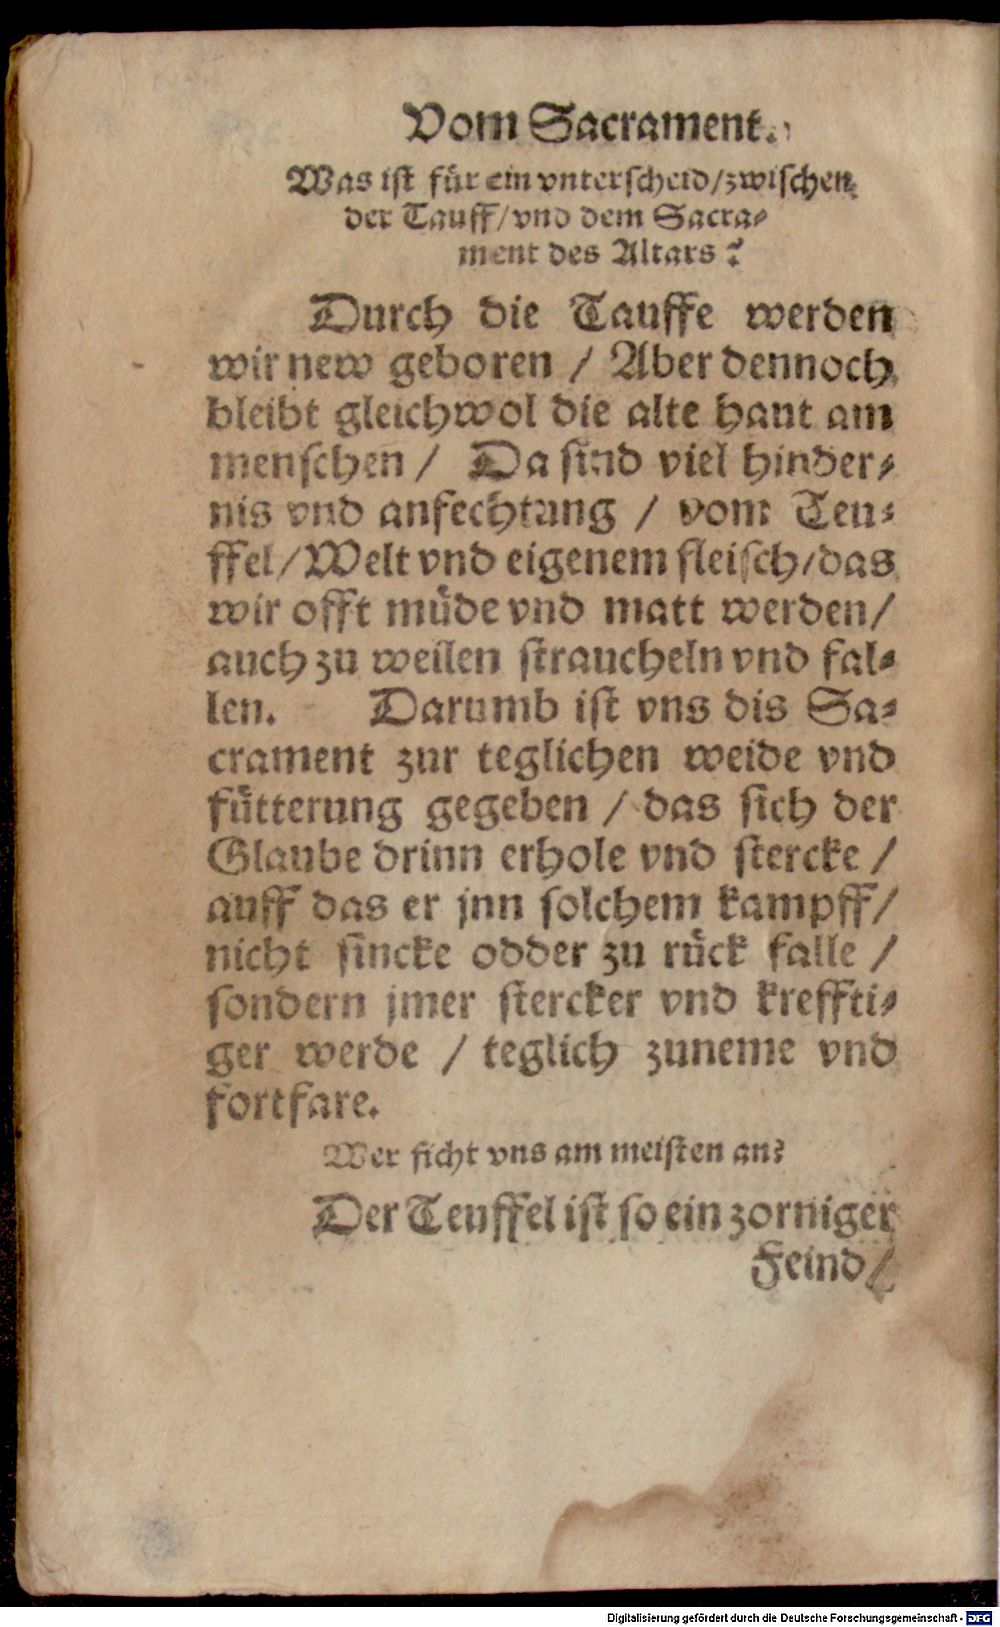 Vom Sacrament.
Was ist für ein vnterscheid/zwischen
der Tauff/vnd dem Sacra⸗
ment des Altars?
Durch die Tauffe werden
wir new geboren / Aber dennoch
bleibt gleichwol die alte haut am
menschen / Da sind viel hinder⸗
nis vnd anfechtung / vom Teu⸗
ffel/Welt vnd eigenem fleisch/das
wir offt müde vnd matt werden/
auch zu weilen straucheln vnd fal⸗
len. Darumb ist vns dis Sa⸗
crament zur teglichen weide vnd
fütterung gegeben / das sich der
Glaube drinn erhole vnd stercke /
auff das er jnn solchem kampff/
nicht sincke odder zu rück falle /
sondern jmer stercker vnd kreffti⸗
ger werde / teglich zuneme vnd
fortfare.
Wer ficht vns am meisten an?
Der Teuffel ist so ein zorniger
Feind/
Digitalisierung gefördert durch die Deutsche Forschungsgemeinschaft - DFG